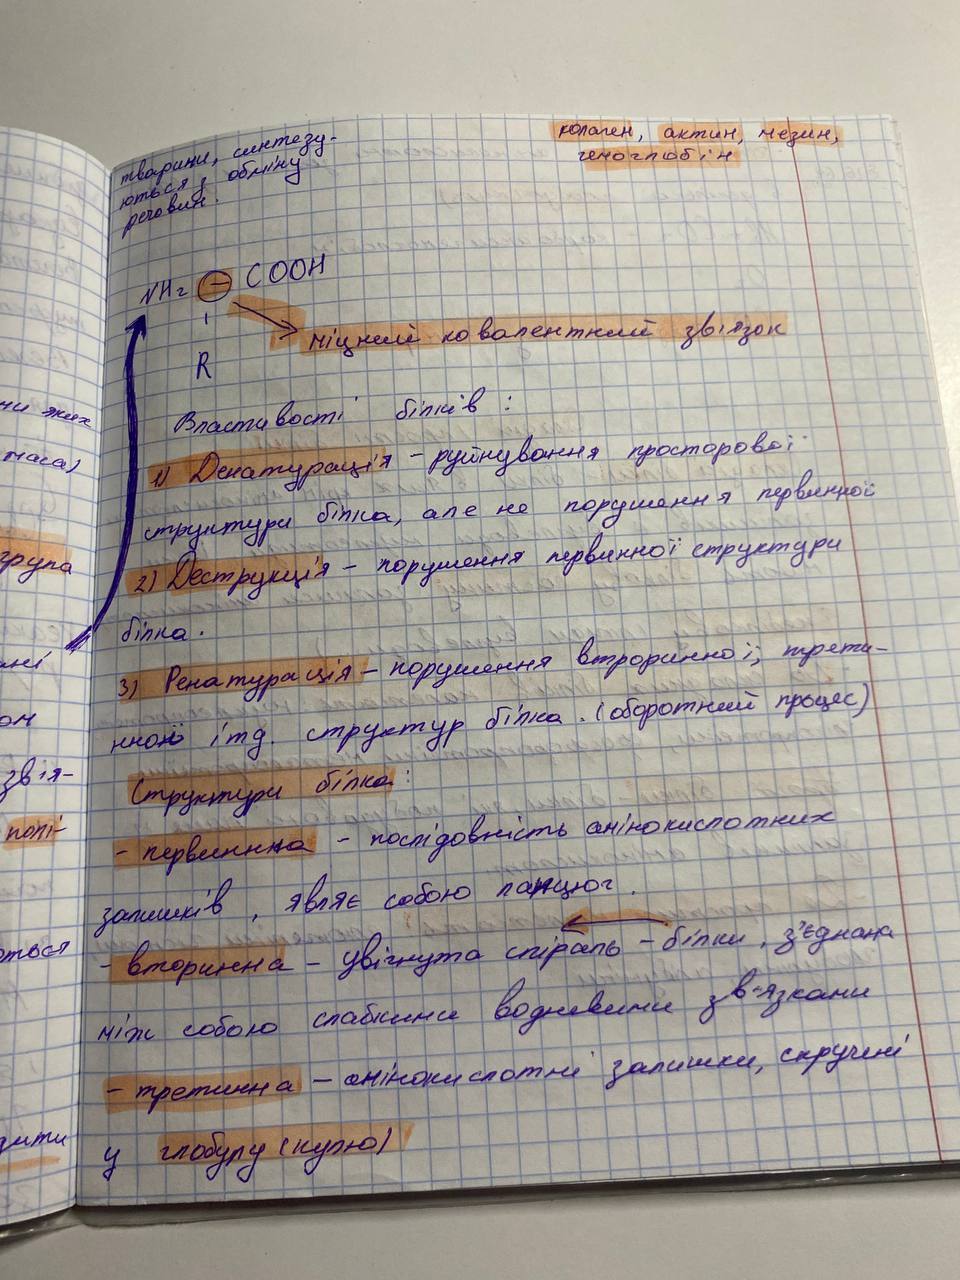 тварини, синтезу-
ються з обміну
речовин.
колаген, актин, мезин,
гемоглобін
NH₂ — COOH
R
міцний ковалентний звіязок
Властивості білків:
1) Денатурація – руйнування просторової
структури білка, але не порушення первинної
2) Деструкція – порушення первинної структури
білка.
3) Ренатурація – порушення втроринної, трети-
нною ітд. структур білка. (оборотний процес)
Структури білка:
- первиннна – послідовність амінокислотних
залишків, являє собою ланцюг.
- вторинна – увігнута спіраль – білки, з'єднана
між собою слабкими водневими зв'язками
- третинна – амінокислотні залишки, скручені
у глобулу (кулю)
ни яких
маса)
група
ані
ом
звія-
полі-
ються
зити